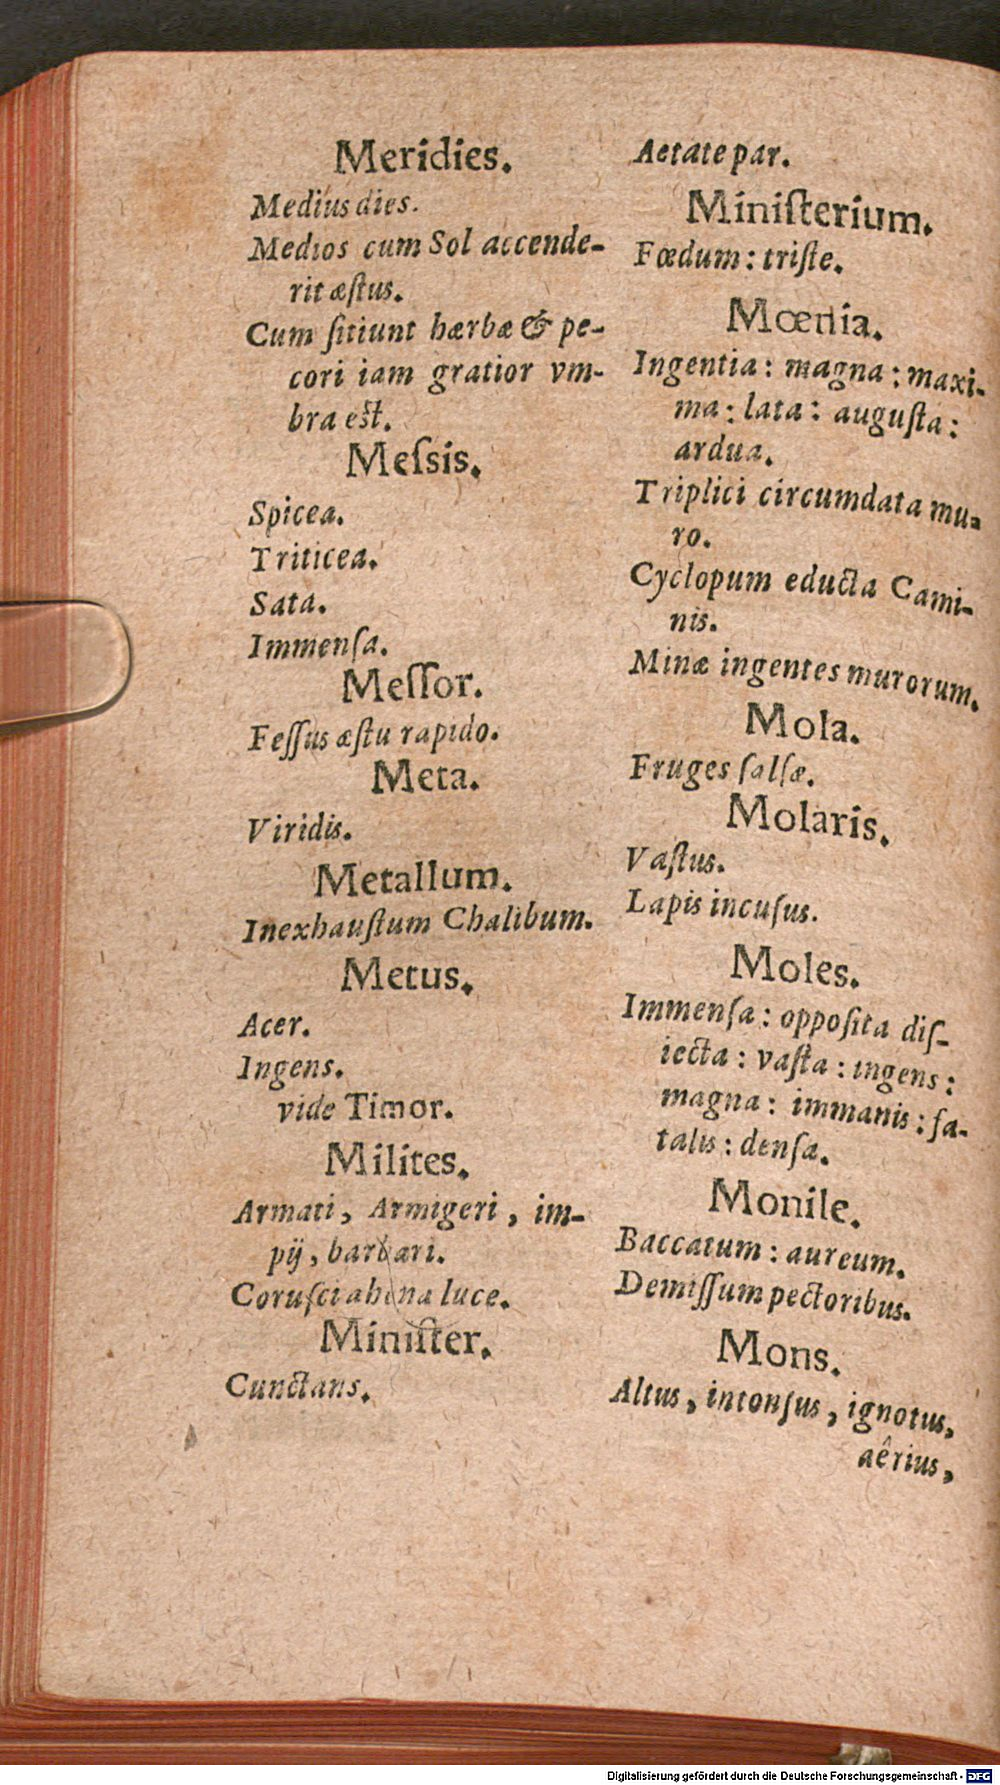 Meridies.
Medius dies.
Medios cum Sol accende-
rit æſtus.
Cum ſitiunt hærbæ & pe-
cori iam gratior vm-
bra est.
Meſsis.
Spicea.
Triticea.
Sata.
Immenſa.
Meſſor.
Feſſus æſtu rapido.
Meta.
Viridis.
Metallum.
Inexhauſtum Chalibum.
Metus.
Acer.
Ingens.
vide Timor.
Milites.
Armati, Armigeri, im-
pij, barbari.
Coruſci ahena luce.
Miniſter.
Cunctans.
Aetate par.
Miniſterium.
Fœdum: triſte.
Mœnia.
Ingentia: magna: maxi-
ma: lata: auguſta:
ardua.
Triplici circumdata mu-
ro.
Cyclopum educta Cami-
nis.
Minæ ingentes murorum.
Mola.
Fruges ſalſæ.
Molaris.
Vaſtus.
Lapis incuſus.
Moles.
Immenſa: oppoſita diſ-
iecta: vaſta: ingens:
magna: immanis: fa-
talis: denſa.
Monile.
Baccatum: aureum.
Demiſſum pectoribus.
Mons.
Altus, intonſus, ignotus,
aêrius,
Digitalisierung gefördert durch die Deutsche Forschungsgemeinschaft - DFG